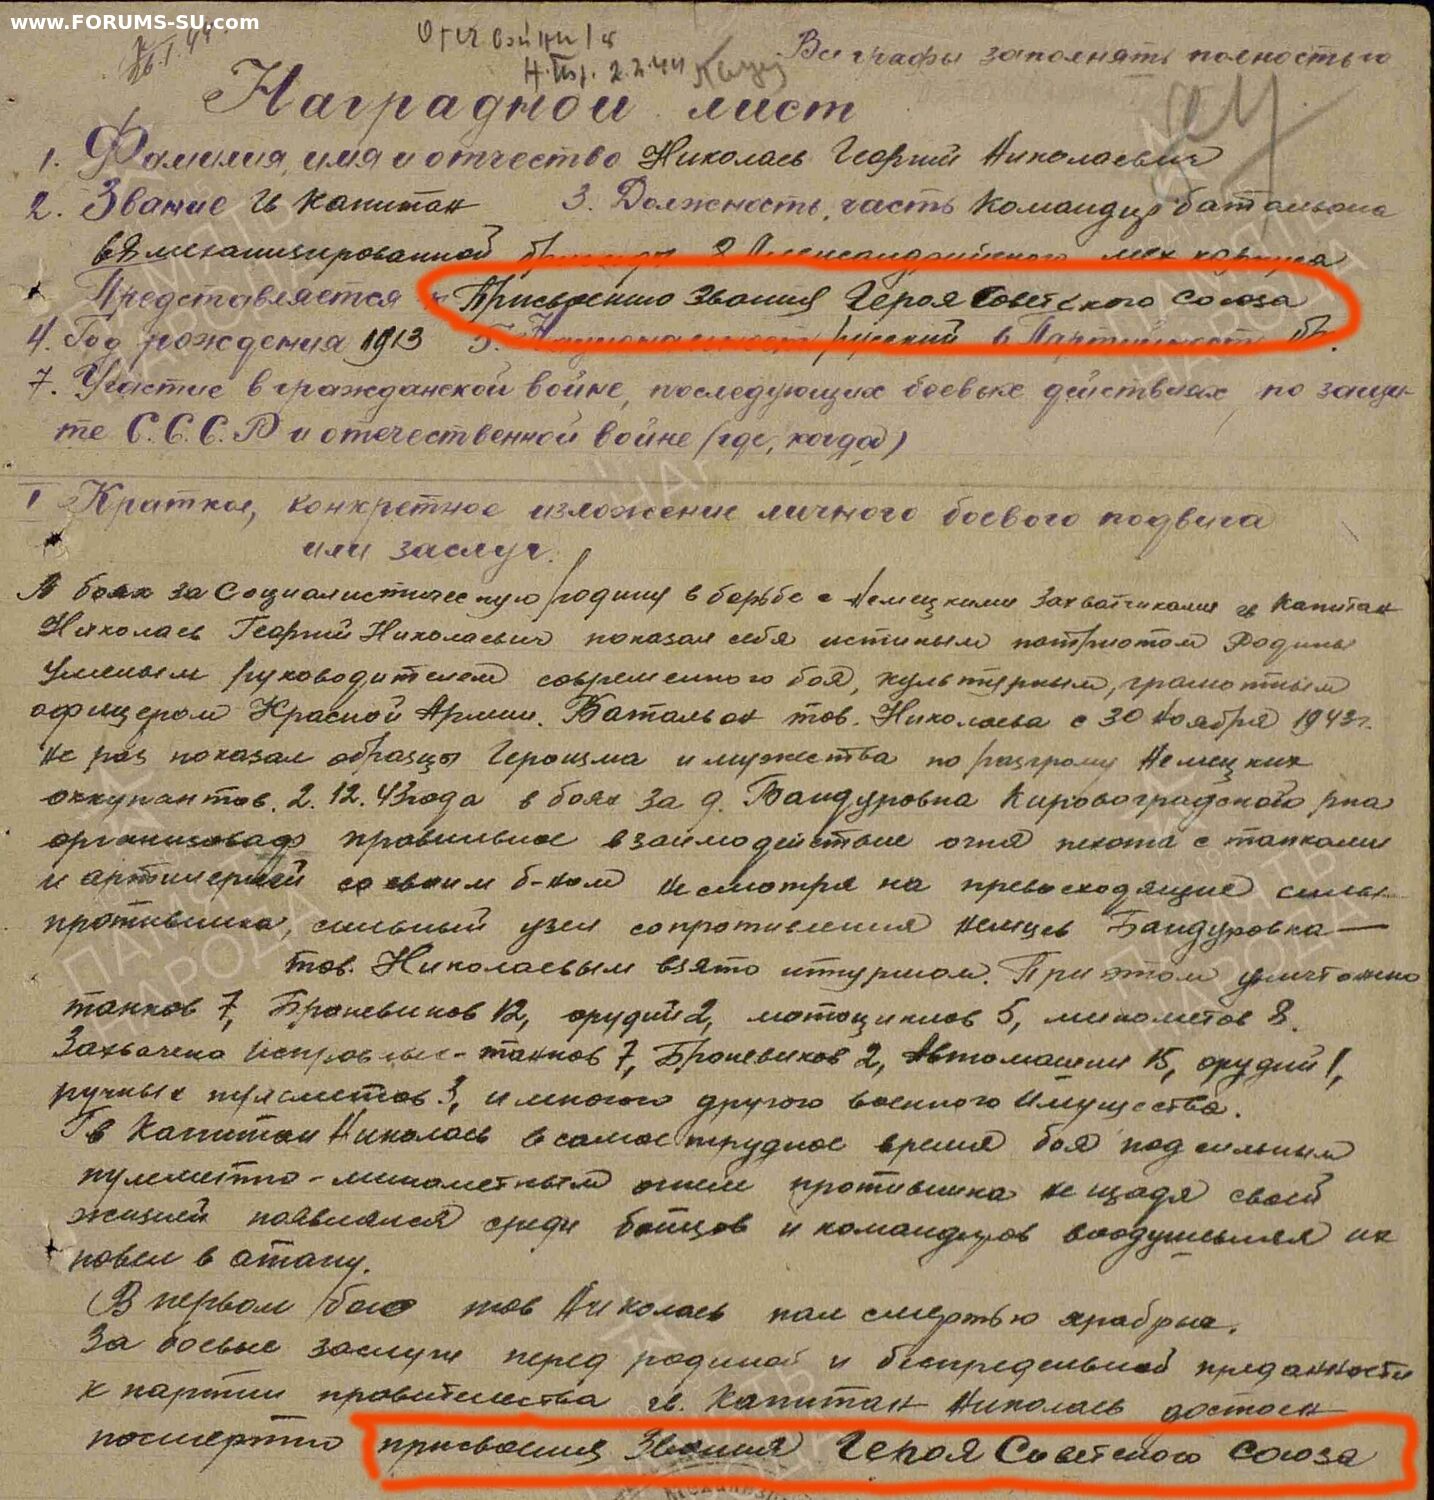 www.FORUMS-SU.com
Отеч войны I ст
2.2.44
Все графы заполнять полностью
Наградной лист
1. Фамилия, имя и отчество Николаев Георгий Николаевич
2. Звание гв капитан 3. Должность, часть Командир батальона
8 механизированной бригады 2 Александрийского мех корпуса
Представляется к Присвоению звания Героя Советского Союза
4. Год рождения 1913 5. Национальность русский 6 Партийность
7. Участие в гражданской войне, последующих боевых действиях по защи-
те С.С.С.Р и отечественной войне (где, когда)
I Краткое, конкретное изложение личного боевого подвига
или заслуг.
В боях за Социалистическую родину в борьбе с Немецкими Захватчиками гв Капитан
Николаев Георгий Николаевич показал себя истиным патриотом Родины
Умелым руководителем современного боя, культурным, грамотным
офицером Красной Армии. Батальон тов. Николаева с 30 Ноября 1943г.
не раз показал образцы Героизма и мужества по разгрому Немецких
оккупантов. 2.12.43 года в боях за д. Бандуровка Кировоградского р-на
организовав правильное взаимодействие огня пехоты с танками
и артилерией со своим б-ном несмотря на превосходящие силы
противника, сильный узел сопротивления немцев Бандуровка —
тов. Николаевым взято штурмом. При этом уничтожено
танков 7, Броневиков 12, орудий 2, мотоциклов 5, минометов 8.
Захвачено исправных - танков 7, Броневиков 2, Автомашин 15, орудий 1,
ручных пулеметов 3, и много другого военного имущества.
Гв Капитан Николаев в самое трудное время боя под сильным
пулеметно-минометным огнем противника не щадя своей
жизней появлялся среди бойцов и командиров воодушевляя их
повел в атаку.
В первом бою тов Николаев пал смертью храбрых.
За боевые заслуги перед родиной и беспредельной преданности
к партии правительства гв. Капитан Николаев достоен
посмертно присвоения Звания Героя Советского Союза